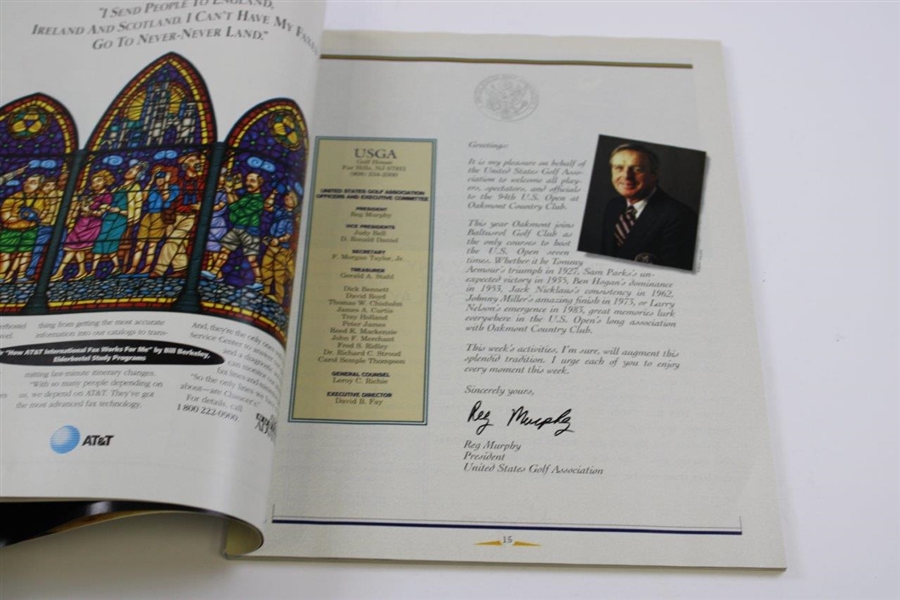 "I SEND PEOPLE TO ENGLAND,
IRELAND AND SCOTLAND. I CAN'T HAVE MY FAXES
GO TO NEVER-NEVER LAND."
thing from getting the most accurate
information into our catalogs to trans-
"How AT&T International Fax Works For Me" by Bill Berkeley,
Elderhostel Study Programs
mitting last-minute itinerary changes.
"With so many people depending on
us, we depend on AT&T. They've got
the most advanced fax technology.
And, they're the only ones
Service Center to answer
and a diagnostic
can monitor our
fax lines and
"So the only lines we
about—are Chaucer's."
For details, call
1 800 222-0900
AT&T
USGA
Golf House
Far Hills, NJ 07931
(908) 234-2300
UNITED STATES GOLF ASSOCIATION
OFFICERS AND EXECUTIVE COMMITTEE
PRESIDENT
Reg Murphy
VICE PRESIDENTS
Judy Bell
D. Ronald Daniel
SECRETARY
F. Morgan Taylor, Jr.
TREASURER
Gerald A. Stahl
Dick Bennett
David Boyd
Thomas W. Chisholm
James A. Curtis
Trey Holland
Peter James
Reed K. Mackenzie
John F. Merchant
Fred S. Ridley
Dr. Richard C. Stroud
Carol Semple Thompson
GENERAL COUNSEL
Leroy C. Richie
EXECUTIVE DIRECTOR
David B. Fay
Greetings:
It is my pleasure on behalf of
the United States Golf Asso-
ciation to welcome all play-
ers, spectators, and officials
to the 94th U.S. Open at
Oakmont Country Club.
This year Oakmont joins
Baltusrol Golf Club as
the only courses to host
the U.S. Open seven
times. Whether it be Tommy
Armour's triumph in 1927, Sam Parks's un-
expected victory in 1935, Ben Hogan's dominance
in 1953, Jack Nicklaus's consistency in 1962,
Johnny Miller's amazing finish in 1973, or Larry
Nelson's emergence in 1983, great memories lurk
everywhere in the U.S. Open's long association
with Oakmont Country Club.
This week's activities, I'm sure, will augment this
splendid tradition. I urge each of you to enjoy
every moment this week.
Sincerely yours,
Reg Murphy
Reg Murphy
President
United States Golf Association
15